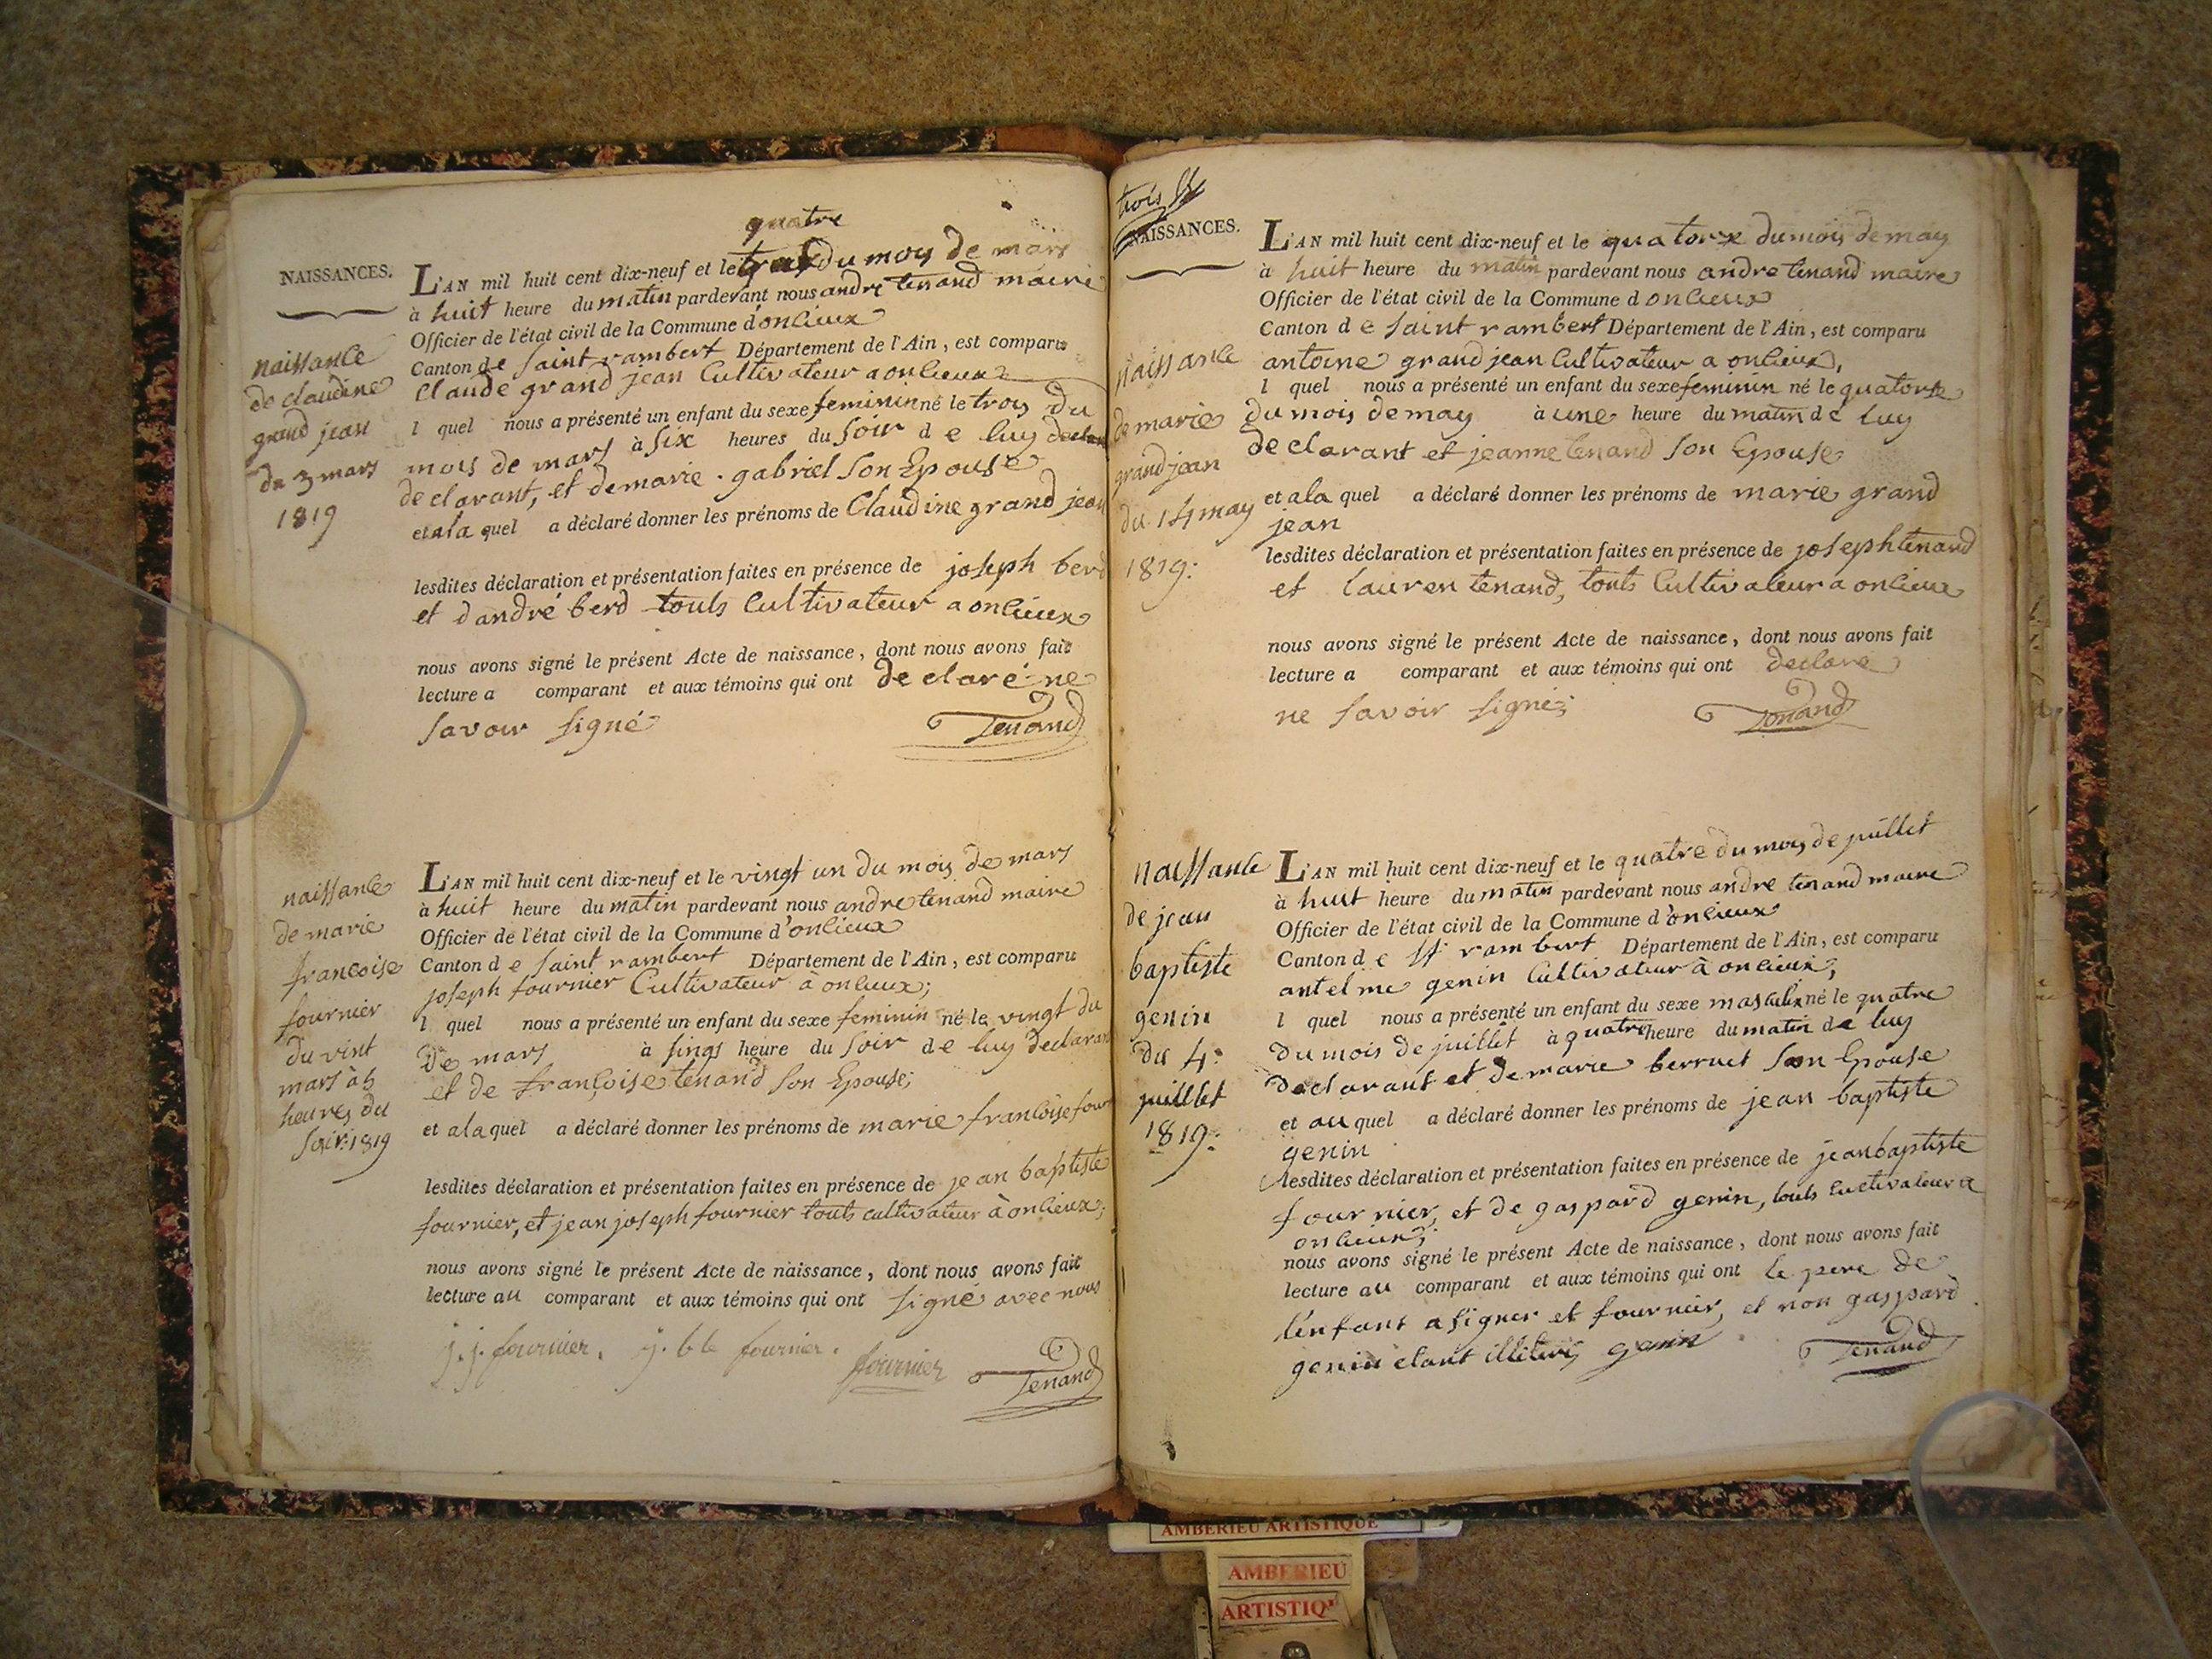 NAISSANCES.
naissance
de claudine
grand jean
du 3 mars
1819
quatre
L'AN mil huit cent dix-neuf et le trois du mois de mars
à huit heure du matin pardevant nous andré tenand maire
Officier de l'état civil de la Commune d'onlieux
Canton de saint rambert Département de l'Ain, est comparu
Claude grand jean Cultivateur a onlieux
l quel nous a présenté un enfant du sexe feminin né le trois du
mois de mars à six heures du soir d e luy declar
declarant, et de marie gabriel son Epouse
et a la quel a déclaré donner les prénoms de Claudine grand jean
lesdites déclaration et présentation faites en présence de joseph berd
et d andré berd touts cultivateur a onlieux
nous avons signé le présent Acte de naissance, dont nous avons fait
lecture a comparant et aux témoins qui ont declaré ne
savoir signé Tenand
naissance
de marie
francoise
fournier
du vint
mars à 5
heures du
soir 1819
L'AN mil huit cent dix-neuf et le vingt un du mois de mars
à huit heure du matin pardevant nous andre tenand maire
Officier de l'état civil de la Commune d'onlieux
Canton d e saint rambert Département de l'Ain, est comparu
joseph fournier Cultivateur à onlieux;
l quel nous a présenté un enfant du sexe feminin né le vingt du
de mars à sinqs heure du soir de luy declarant
et de françoise tenand son Epouse;
et a la quel a déclaré donner les prénoms de marie francoise four
lesdites déclaration et présentation faites en présence de jean baptiste
fournier, et jean joseph fournier touts cultivateur à onlieux;
nous avons signé le présent Acte de naissance, dont nous avons fait
lecture au comparant et aux témoins qui ont signé avec nous
j. j. fournier. j. bte fournier. fournier Tenand
trois
NAISSANCES.
Naissance
de marie
grand jean
du 14 may
1819:
L'AN mil huit cent dix-neuf et le quatorze du mois de may
à huit heure du matin pardevant nous andre tenand maire
Officier de l'état civil de la Commune d onlieux
Canton d e saint rambert Département de l'Ain, est comparu
antoine grand jean Cultivateur a onlieux,
l quel nous a présenté un enfant du sexe feminin né le quatorze
du mois de may à une heure du matin de luy
declarant et jeanne tenand son Epouse
et a la quel a déclaré donner les prénoms de marie grand
jean
lesdites déclaration et présentation faites en présence de joseph tenand
et lauren tenand, touts Cultivateur a onlieux
nous avons signé le présent Acte de naissance, dont nous avons fait
lecture a comparant et aux témoins qui ont declare
ne savoir signé; Tenand
naissance
de jean
baptiste
genin
du 4:
juillet
1819:
L'AN mil huit cent dix-neuf et le quatre du mois de juillet
à huit heure du matin pardevant nous andre tenand maire
Officier de l'état civil de la Commune d'onlieux
Canton d e st rambert Département de l'Ain, est comparu
antelme genin Cultivateur à onlieux,
l quel nous a présenté un enfant du sexe masculin né le quatre
du mois de juillet à quatre heure du matin de luy
declarant et de marie berruet son Epouse
et au quel a déclaré donner les prénoms de jean baptiste
genin
lesdites déclaration et présentation faites en présence de jean baptiste
fournier, et de gaspard genin, touts cultivateur a
onlieux;
nous avons signé le présent Acte de naissance, dont nous avons fait
lecture au comparant et aux témoins qui ont le pere de
l'enfant a signer et fournier, et non gaspard
genin etant illiteré genin Tenand
AMBERIEU ARTISTIQUE
AMBERIEU
ARTISTIQ